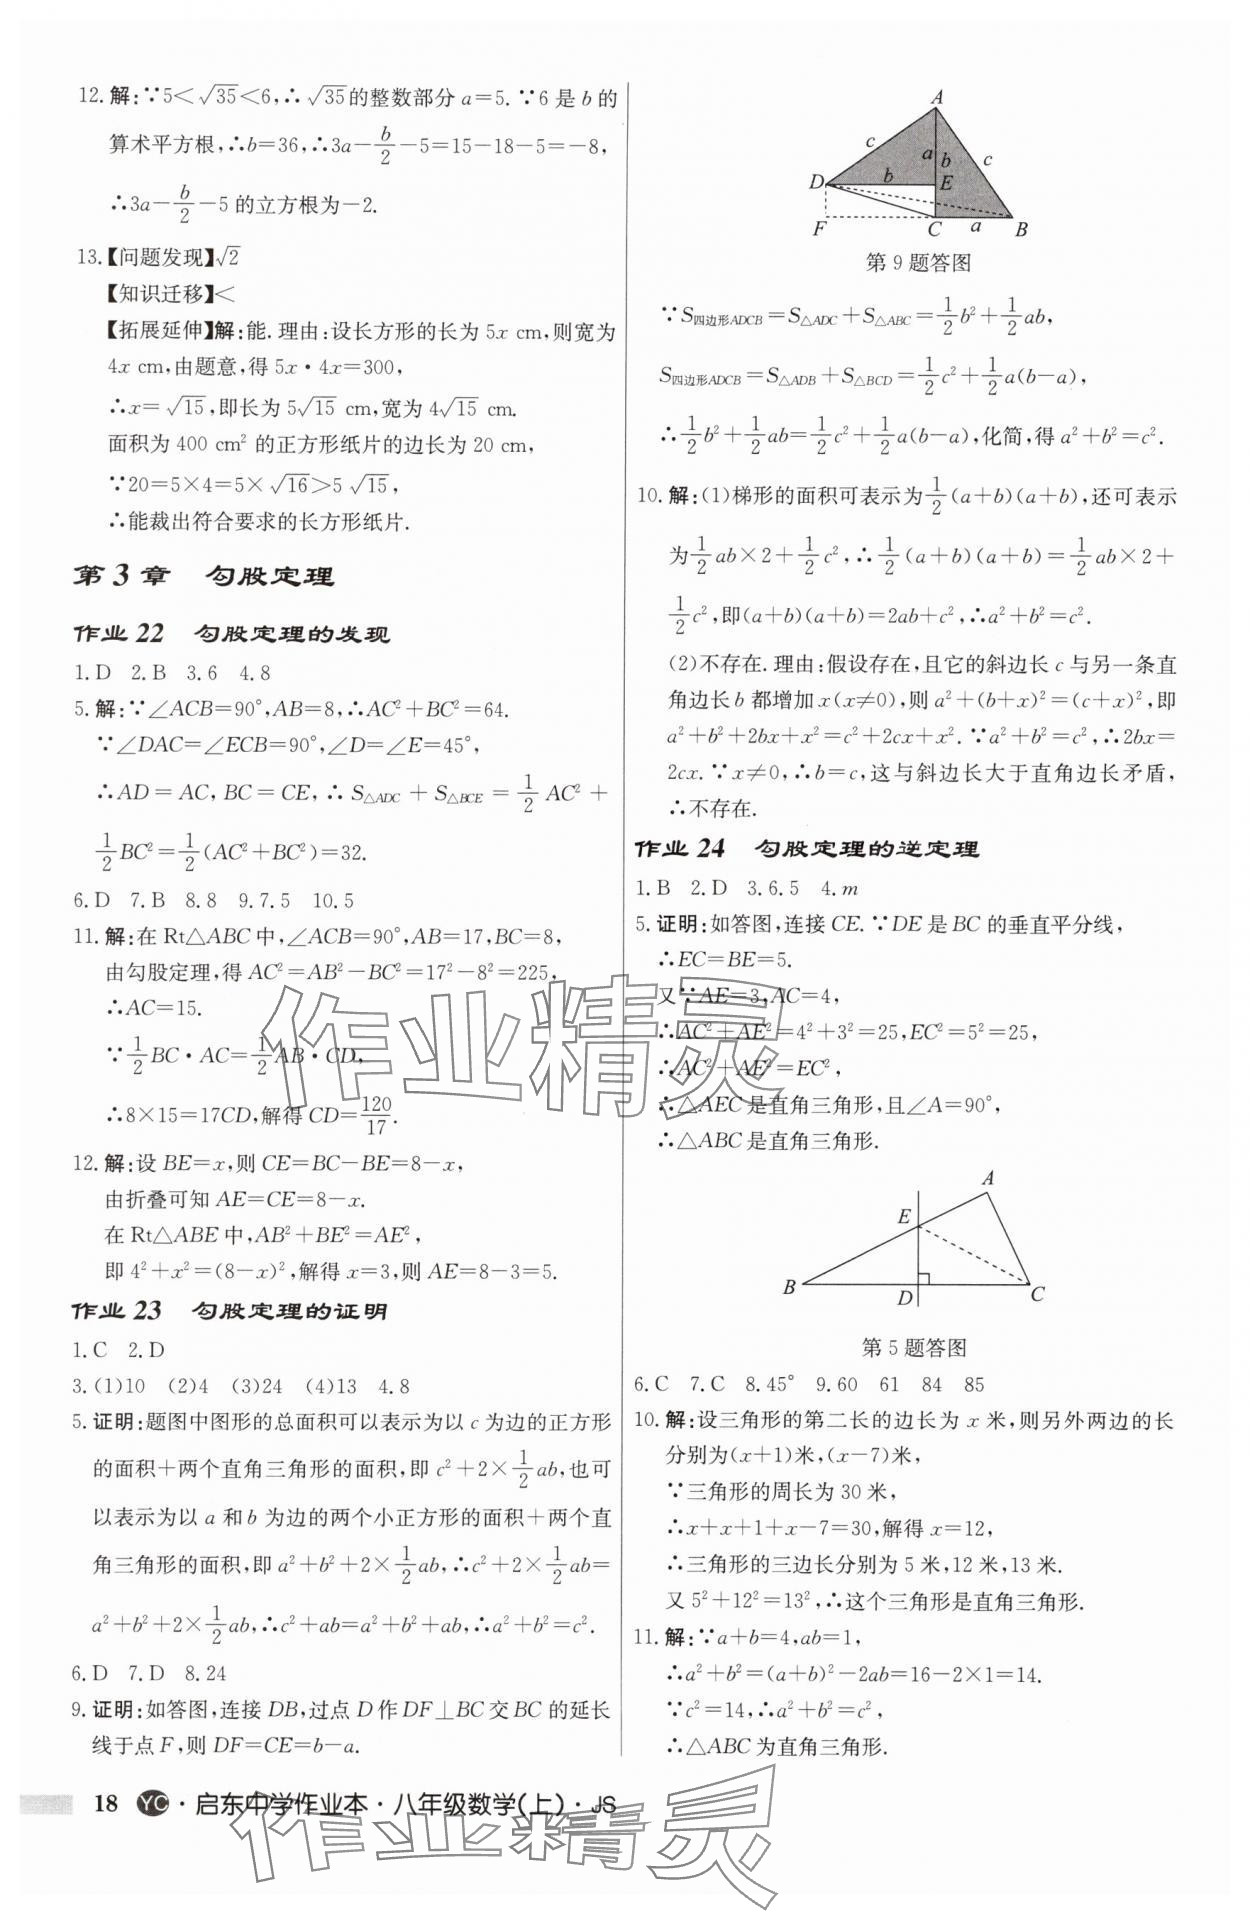 12. 解:∵5<√35<6,∴√35的整数部分 a=5. ∵6 是 b 的
算术平方根,∴b=36,∴3a-b/2-5=15-18-5=-8,
∴3a-b/2-5 的立方根为-2.
13.【问题发现】√2
【知识迁移】<
【拓展延伸】解:能. 理由:设长方形的长为 5x cm,则宽为
4x cm,由题意,得 5x·4x=300,
∴x=√15,即长为 5√15 cm,宽为 4√15 cm.
面积为 400 cm² 的正方形纸片的边长为 20 cm,
∵20=5×4=5×√16>5√15,
∴能裁出符合要求的长方形纸片.
第 3 章 勾股定理
作业 22 勾股定理的发现
1. D 2. B 3. 6 4. 8
5. 解:∵∠ACB=90°,AB=8,∴AC²+BC²=64.
∵∠DAC=∠ECB=90°,∠D=∠E=45°,
∴AD=AC,BC=CE,∴S△ADC+S△BCE=1/2 AC²+
1/2 BC²=1/2(AC²+BC²)=32.
6. D 7. B 8. 8 9. 7.5 10. 5
11. 解:在 Rt△ABC 中,∠ACB=90°,AB=17,BC=8,
由勾股定理,得 AC²=AB²-BC²=17²-8²=225,
∴AC=15.
∵1/2 BC·AC=1/2 AB·CD,
∴8×15=17CD,解得 CD=120/17.
12. 解:设 BE=x,则 CE=BC-BE=8-x,
由折叠可知 AE=CE=8-x.
在 Rt△ABE 中,AB²+BE²=AE²,
即 4²+x²=(8-x)²,解得 x=3,则 AE=8-3=5.
作业 23 勾股定理的证明
1. C 2. D
3. (1)10 (2)4 (3)24 (4)13 4. 8
5. 证明:题图中图形的总面积可以表示为以 c 为边的正方形
的面积+两个直角三角形的面积,即 c²+2×1/2 ab,也可
以表示为以 a 和 b 为边的两个小正方形的面积+两个直
角三角形的面积,即 a²+b²+2×1/2 ab,∴c²+2×1/2 ab=
a²+b²+2×1/2 ab,∴c²+ab=a²+b²+ab,∴a²+b²=c².
6. D 7. D 8. 24
9. 证明:如答图,连接 DB,过点 D 作 DF⊥BC 交 BC 的延长
线于点 F,则 DF=CE=b-a.
A
c
a
b
c
D
b
E
F
C
a
B
第 9 题答图
∵S四边形ADCB=S△ADC+S△ABC=1/2 b²+1/2 ab,
S四边形ADCB=S△ADB+S△BCD=1/2 c²+1/2 a(b-a),
∴1/2 b²+1/2 ab=1/2 c²+1/2 a(b-a),化简,得 a²+b²=c².
10. 解:(1)梯形的面积可表示为1/2(a+b)(a+b),还可表示
为1/2 ab×2+1/2 c²,∴1/2(a+b)(a+b)=1/2 ab×2+
1/2 c²,即(a+b)(a+b)=2ab+c²,∴a²+b²=c².
(2)不存在. 理由:假设存在,且它的斜边长 c 与另一条直
角边长 b 都增加 x(x≠0),则 a²+(b+x)²=(c+x)²,即
a²+b²+2bx+x²=c²+2cx+x². ∵a²+b²=c²,∴2bx=
2cx. ∵x≠0,∴b=c,这与斜边长大于直角边长矛盾,
∴不存在.
作业 24 勾股定理的逆定理
1. B 2. D 3. 6.5 4. m
5. 证明:如答图,连接 CE. ∵DE 是 BC 的垂直平分线,
∴EC=BE=5.
又∵AE=3,AC=4,
∴AC²+AE²=4²+3²=25,EC²=5²=25,
∴AC²+AE²=EC²,
∴△AEC 是直角三角形,且∠A=90°,
∴△ABC 是直角三角形.
A
E
B
D
C
第 5 题答图
6. C 7. C 8. 45° 9. 60 61 84 85
10. 解:设三角形的第二长的边长为 x 米,则另外两边的长
分别为(x+1)米,(x-7)米,
∵三角形的周长为 30 米,
∴x+x+1+x-7=30,解得 x=12,
∴三角形的三边长分别为 5 米,12 米,13 米.
又 5²+12²=13²,∴这个三角形是直角三角形.
11. 解:∵a+b=4,ab=1,
∴a²+b²=(a+b)²-2ab=16-2×1=14.
∵c²=14,∴a²+b²=c²,
∴△ABC 为直角三角形.
作业精灵
18 YC·启东中学作业本·八年级数学(上)·JS
作业精灵